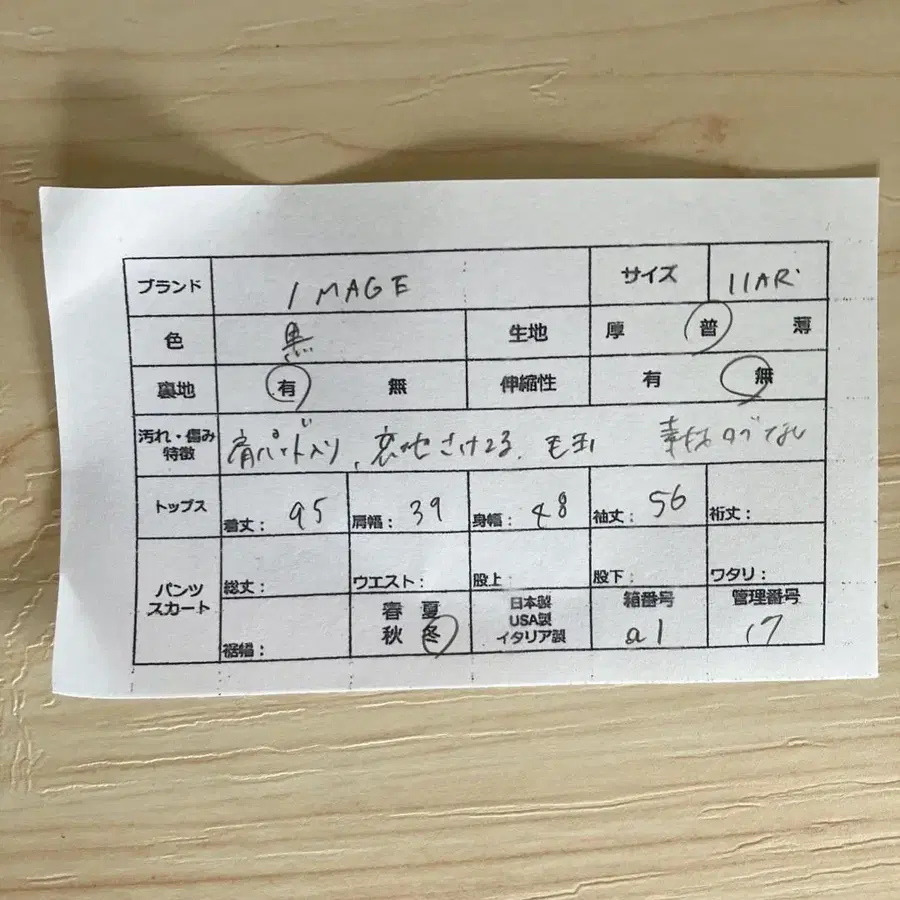 ブランド IMAGE サイズ 11AR
色 黒 生地 厚 普 薄
裏地 有 無 伸縮性 有 無
汚れ・傷み 肩パッド入り、裏地さけてる、毛玉 タグなし
特徴
トップス 着丈: 95 肩幅: 39 身幅: 48 袖丈: 56 裄丈:
パンツ 総丈: ウエスト: 股上 股下: ワタリ:
スカート 裾幅: 春 夏 日本製 箱番号 管理番号
秋 冬 USA製 a1 17
イタリア製